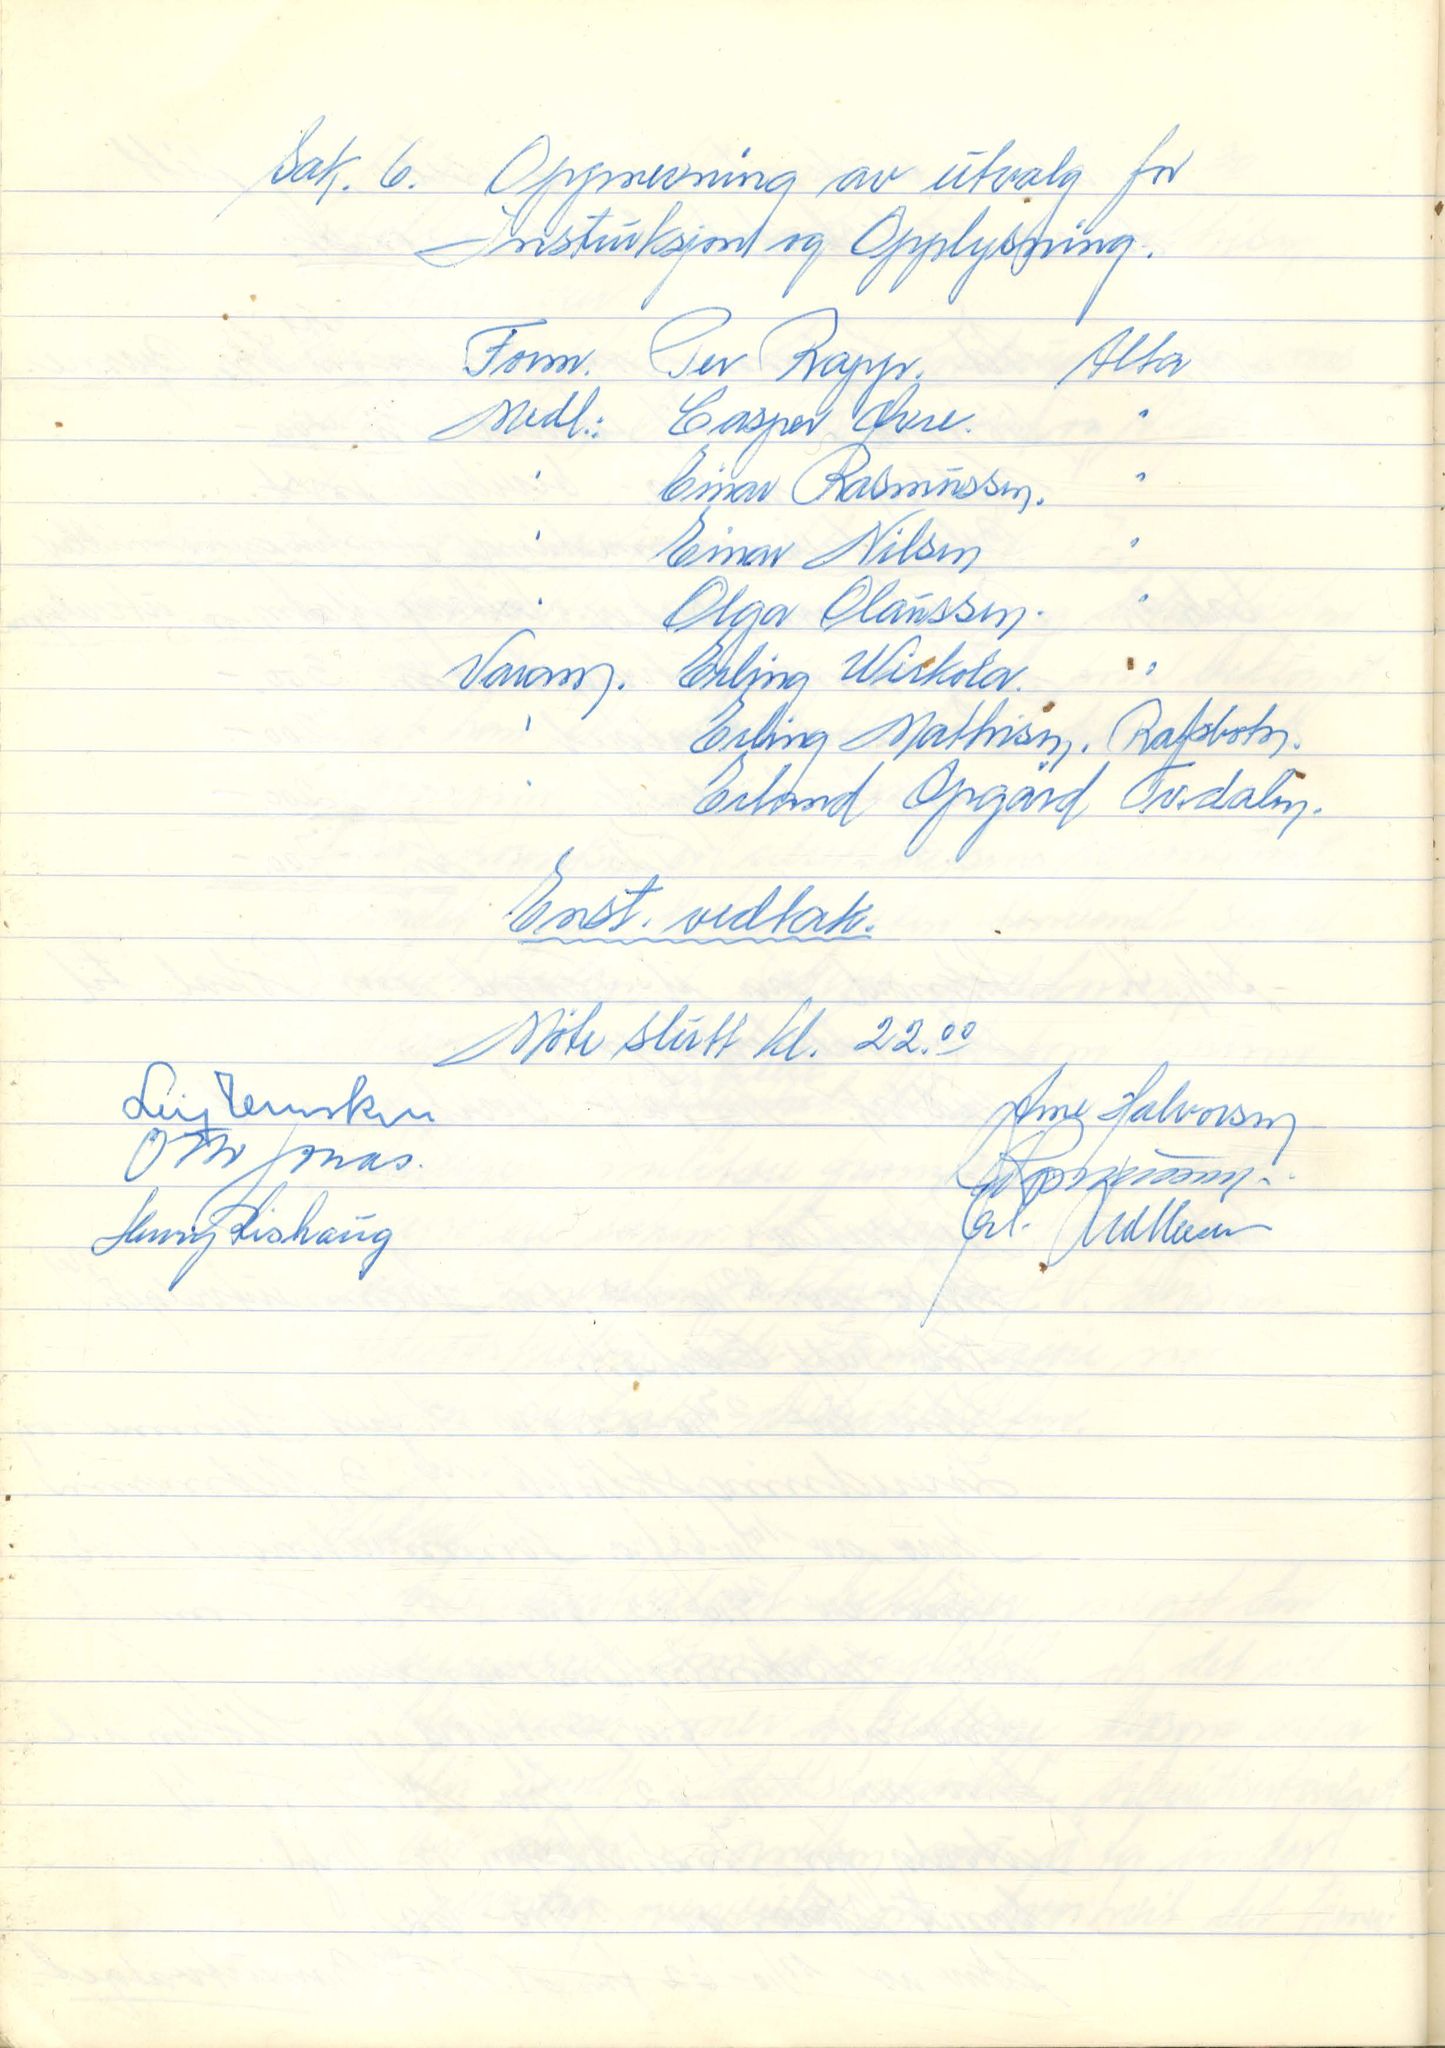 Sak. 6. Oppnevning av utvalg for
Instruksjon og Opplysning.
Form. Per Rapp. Alta
Medl.: Casper "
" Einar Rasmussen. "
" Einar Nilsen "
" Olga Olaussen. "
Varam. Erling Wirkola. "
" Erling Mathisen. Rafsbotn.
" Erland Opgård Tverdalen.
Enst. vedtak.
Möte slutt kl. 22.00
Otto Jonas.
Arne Halvorsen
Henry Lishaug